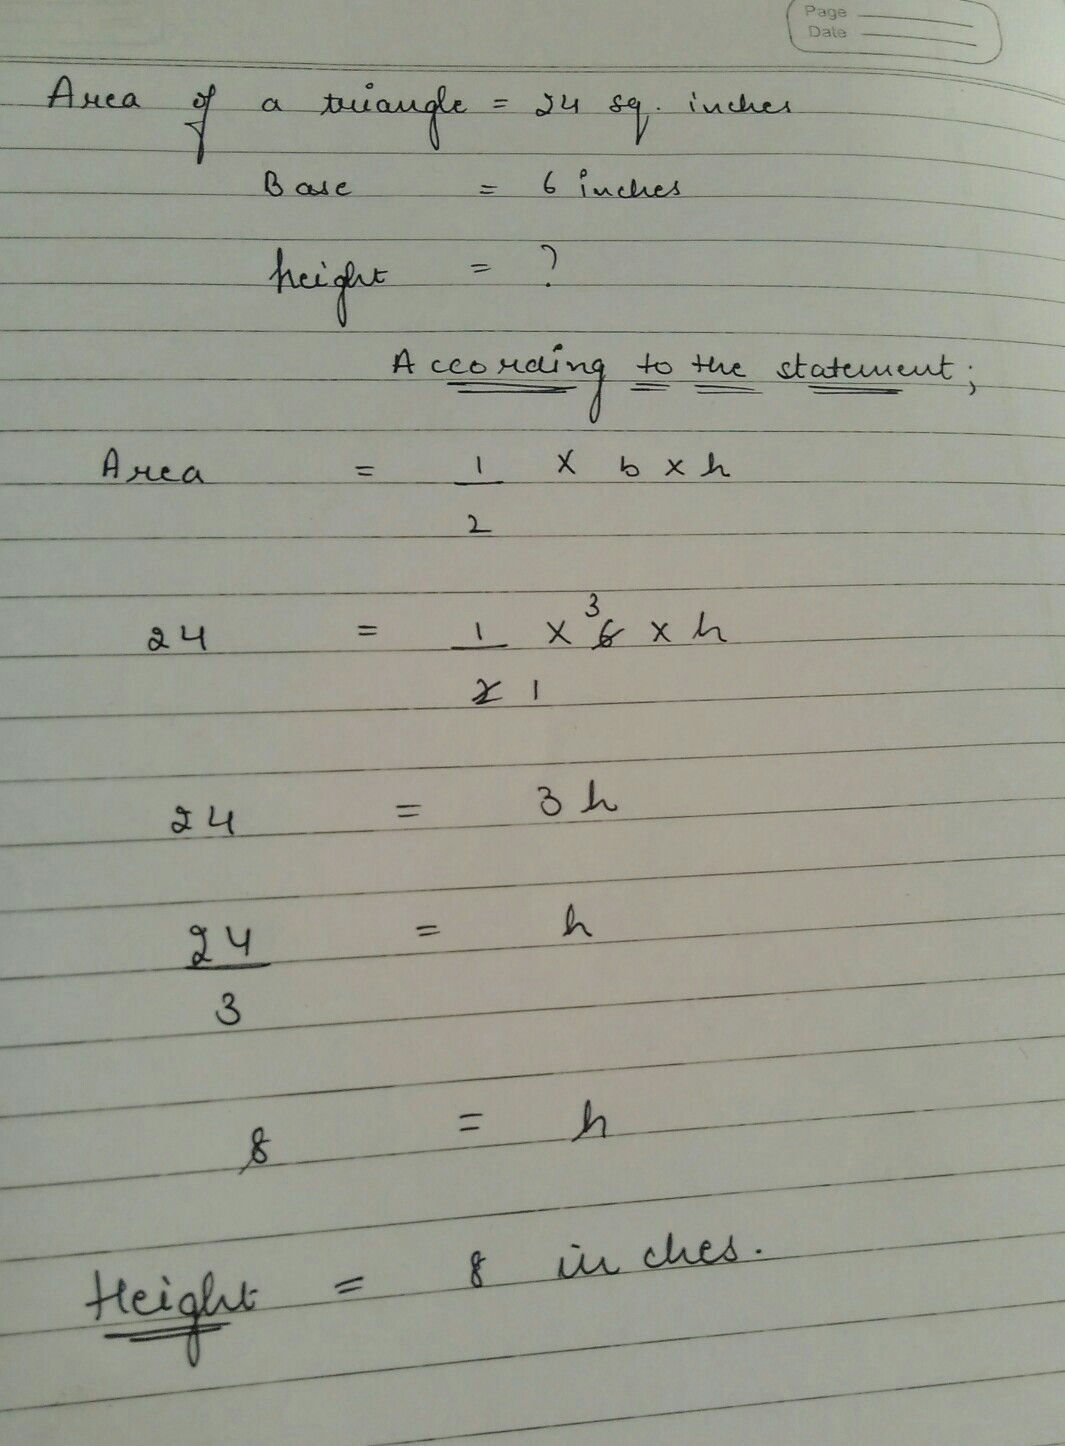 Page
Date
Area of a triangle = 24 sq. inches
Base = 6 inches
height = ?
According to the statement;
Area = 1 × b × h
2
24 = 1 × 6 3 × h
2 1
24 = 3h
24 = h
3
8 = h
Height = 8 inches.